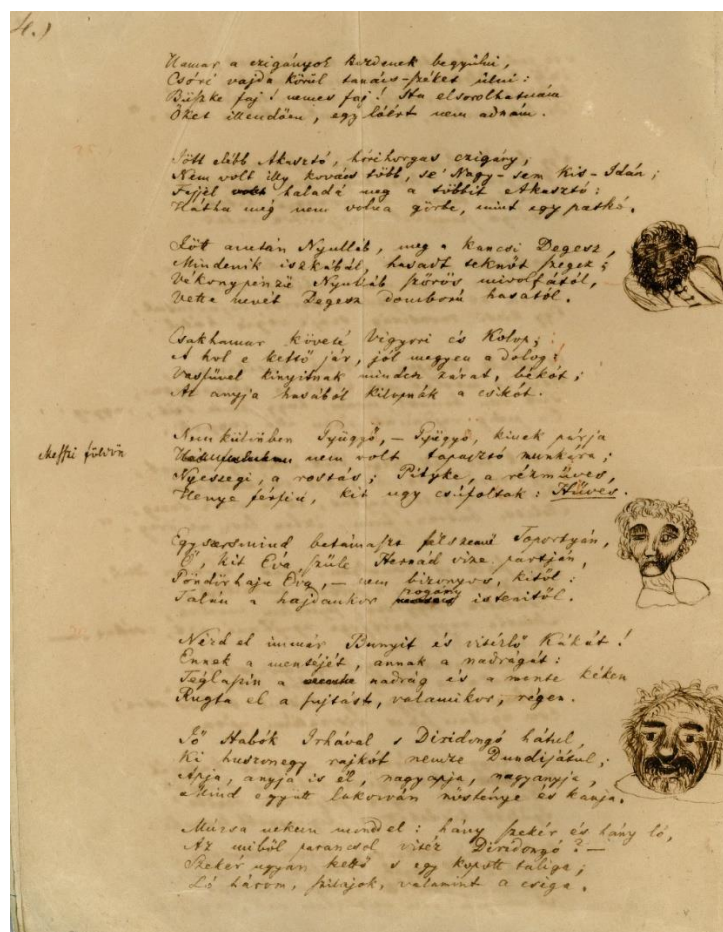 4.)
Hamar a czigányok kezdenek begyülni,
Csóri vajda körül tanács-széket ülni:
Büszke faj! nemes faj! Ha elsorolhatnám
Őket illendően, egy lóért nem adnám.
Jött elébb Akasztó, hórihorgas czigány,
Nem volt illy kovács több, se' Nagy- sem Kis-Idán;
Fejjel haladá meg a többit Akasztó:
Hátha még nem volna görbe, mint egy patkó.
Jött azután Nyulláb, meg a kancsi Degesz,
Mindenik iszkábál, hasadt teknőt szegez;
Vékonypénzű Nyulláb szőrös mivoltától,
Vette nevét Degesz domború hasától.
Csakhamar követé Vigyori és Kolop;
A hol e kettő jár, jól megyen a dolog:
Vasfüvel kinyitnak minden zárat, békót;
Az anyja hasából kilopnák a csikót.
Nem különben Gyügyő, – Gyügyő, kinek párja
Messzi földön nem volt tapasztó munkára;
Nyesszegi, a rostás; Pityke, a rézműves,
Henye férfiú, kit ugy csúfoltak: Hűves.
Egyszersmind betámaszt félszemű Toportyán,
Ő, kit Éva szüle Hernád vize partján,
Göndörhaja Éva, – nem bizonyos, kitől:
Talán a hajdankor pogány istenitől.
Nézd el immár Bunyit és vitézlő Kákát!
Ennek a mentéjét, annak a nadrágát:
Téglaszín a nadrág és a mente kéken
Rugta el a fujtást, valamikor, régen.
Jő Habók Irhával s Diridongó hátul,
Ki huszonegy rajkót nemze Dundijátul;
Apja, anyja is él, nagyapja, nagyanyja,
Mind együtt lakozván nősténye és kanja.
Múzsa nekem mondd el: hány szekér és hány ló,
Az miből parancsol vitéz Diridongó? –
Szekér ugyan kettő s egy kopott taliga;
Ló három, szilajok, valamint a csiga.